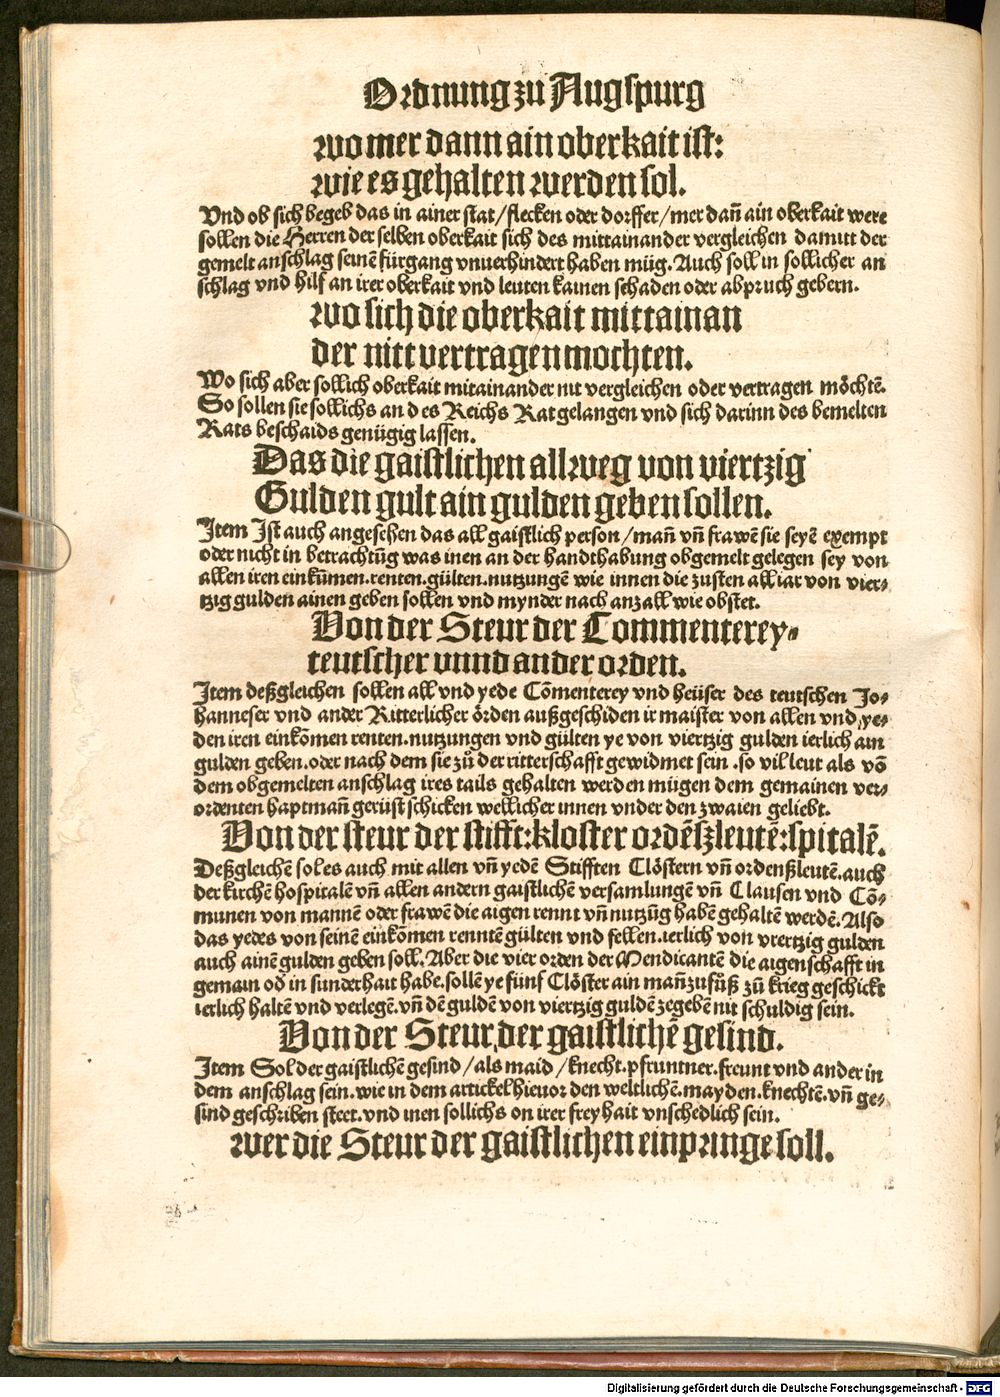 Ordnung zu Augspurg
wo mer dann ain oberkait ist:
wie es gehalten werden sol.
Vnd ob sich begeb das in ainer stat/flecken oder dorffer/mer dañ ain oberkait were
sollen die Herren der selben oberkait sich des mittainander vergleichen damitt der
gemelt anschlag seinē fürgang vnuerhindert haben müg. Auch soll in sollicher an
schlag vnd hilf an irer oberkait vnd leuten kainen schaden oder abpruch gebern.
wo sich die oberkait mittainan
der nitt vertragen mochten.
Wo sich aber sollich oberkait mitainander nit vergleichen oder vertragen möchtē.
So sollen sie sollichs an des Reichs Rat gelangen vnd sich darinn des bemelten
Rats beschaids genügig lassen.
Das die gaistlichen allweg von viertzig
Gulden gult ain gulden geben sollen.
Item Jst auch angesehen das all gaistlich person/mañ vñ frawē sie seyē exempt
oder nicht in betrachtūg was inen an der handthabung obgemelt gelegen sey von
allen iren einkūmen.renten.gülten.nutzungē wie innen die zusten all iar von vier⸗
tzig gulden ainen geben sollen vnd mynder nach anzall wie obstet.
Von der Steur der Commenterey⸗
teutscher vnnd ander orden.
Item deßgleichen sollen all vnd yede Cōmenterey vnd heüser des teutschen Jo⸗
hanneser vnd ander Ritterlicher örden außgeschiden ir maister von allen vnd ye⸗
den iren einkōmen renten.nutzungen vnd gülten ye von viertzig gulden ierlich ain
gulden geben.oder nach dem sie zů der ritterschafft gewidmet sein.so vil leut als vō
dem obgemelten anschlag ires tails gehalten werden mügen dem gemainen ver⸗
ordenten haptmañ gerüst schicken wellicher innen vnder den zwaien geliebt.
Von der steur der stifft:kloster ordēszleutē:spitalē.
Deßgleichē sol es auch mit allen vñ yedē Stifften Clöstern vñ ordenßleutē.auch
der kirchē hospitalē vñ allen andern gaistlichē versamlungē vñ Clausen vnd Cō⸗
munen von mannē oder frawē die aigen rennt vñ nutzūg habē gehaltē werdē.Also
das yedes von seinē einkōmen renntē gülten vnd fellen.ierlich von viertzig gulden
auch ainē gulden geben soll.Aber die vier orden der Mendicantē die aigenschafft in
gemain od̄ in sunderhait habe.sollē ye fünf Clöster ain mañ zufůß zů krieg geschickt
ierlich haltē vnd verlegē.vñ dē guldē von viertzig guldē zegebē nit schuldig sein.
Von der Steur der gaistlichē gesind.
Item Sol der gaistlichē gesind/als maid/knecht.pfruntner.freunt vnd ander in
dem anschlag sein.wie in dem artickel hieuor den weltlichē.mayden.knechtē.vñ ge⸗
sind geschriben steet.vnd inen sollichs on irer freyhait vnschedlich sein.
wer die Steur der gaistlichen einpringe soll.
Digitalisierung gefördert durch die Deutsche Forschungsgemeinschaft - DFG